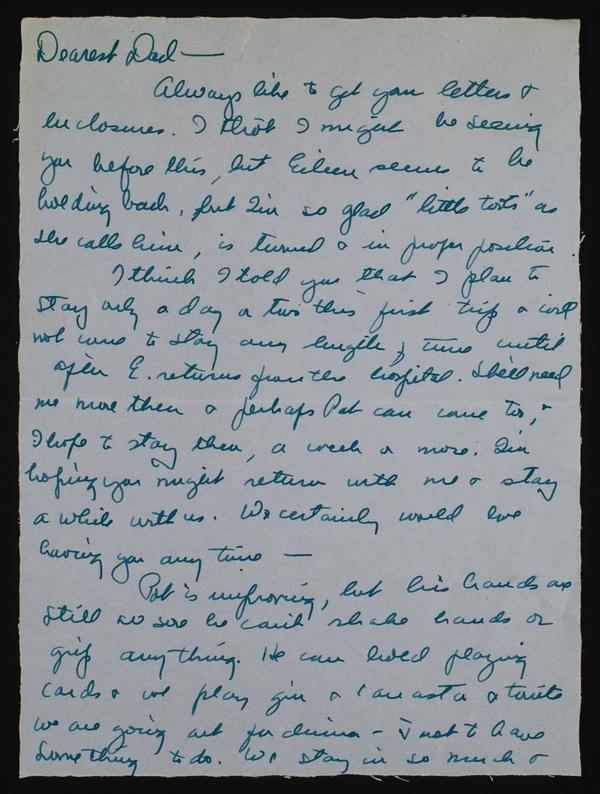 Dearest Dad —
Always like to get your letters &
enclosures. I thot I might be seeing
you before this, but Eileen seems to be
holding back, but I'm so glad "little toots" as
she calls him, is turned & in proper position.
I think I told you that I plan to
stay only a day or two this first trip & will
not come to stay any length of time until
after E. returns from the hospital. She'll need
me more then & perhaps Pat can come too, &
I hope to stay then, a week or more. I'm
hoping you might return with me & stay
a while with us. We certainly would love
having you any time —
Pat is improving, but his hands are
still so sore he can't shake hands or
grip anything. He can hold playing
cards & we play gin & Canasta & tonite
we are going out for dinner - just to have
something to do. We stay in so much &